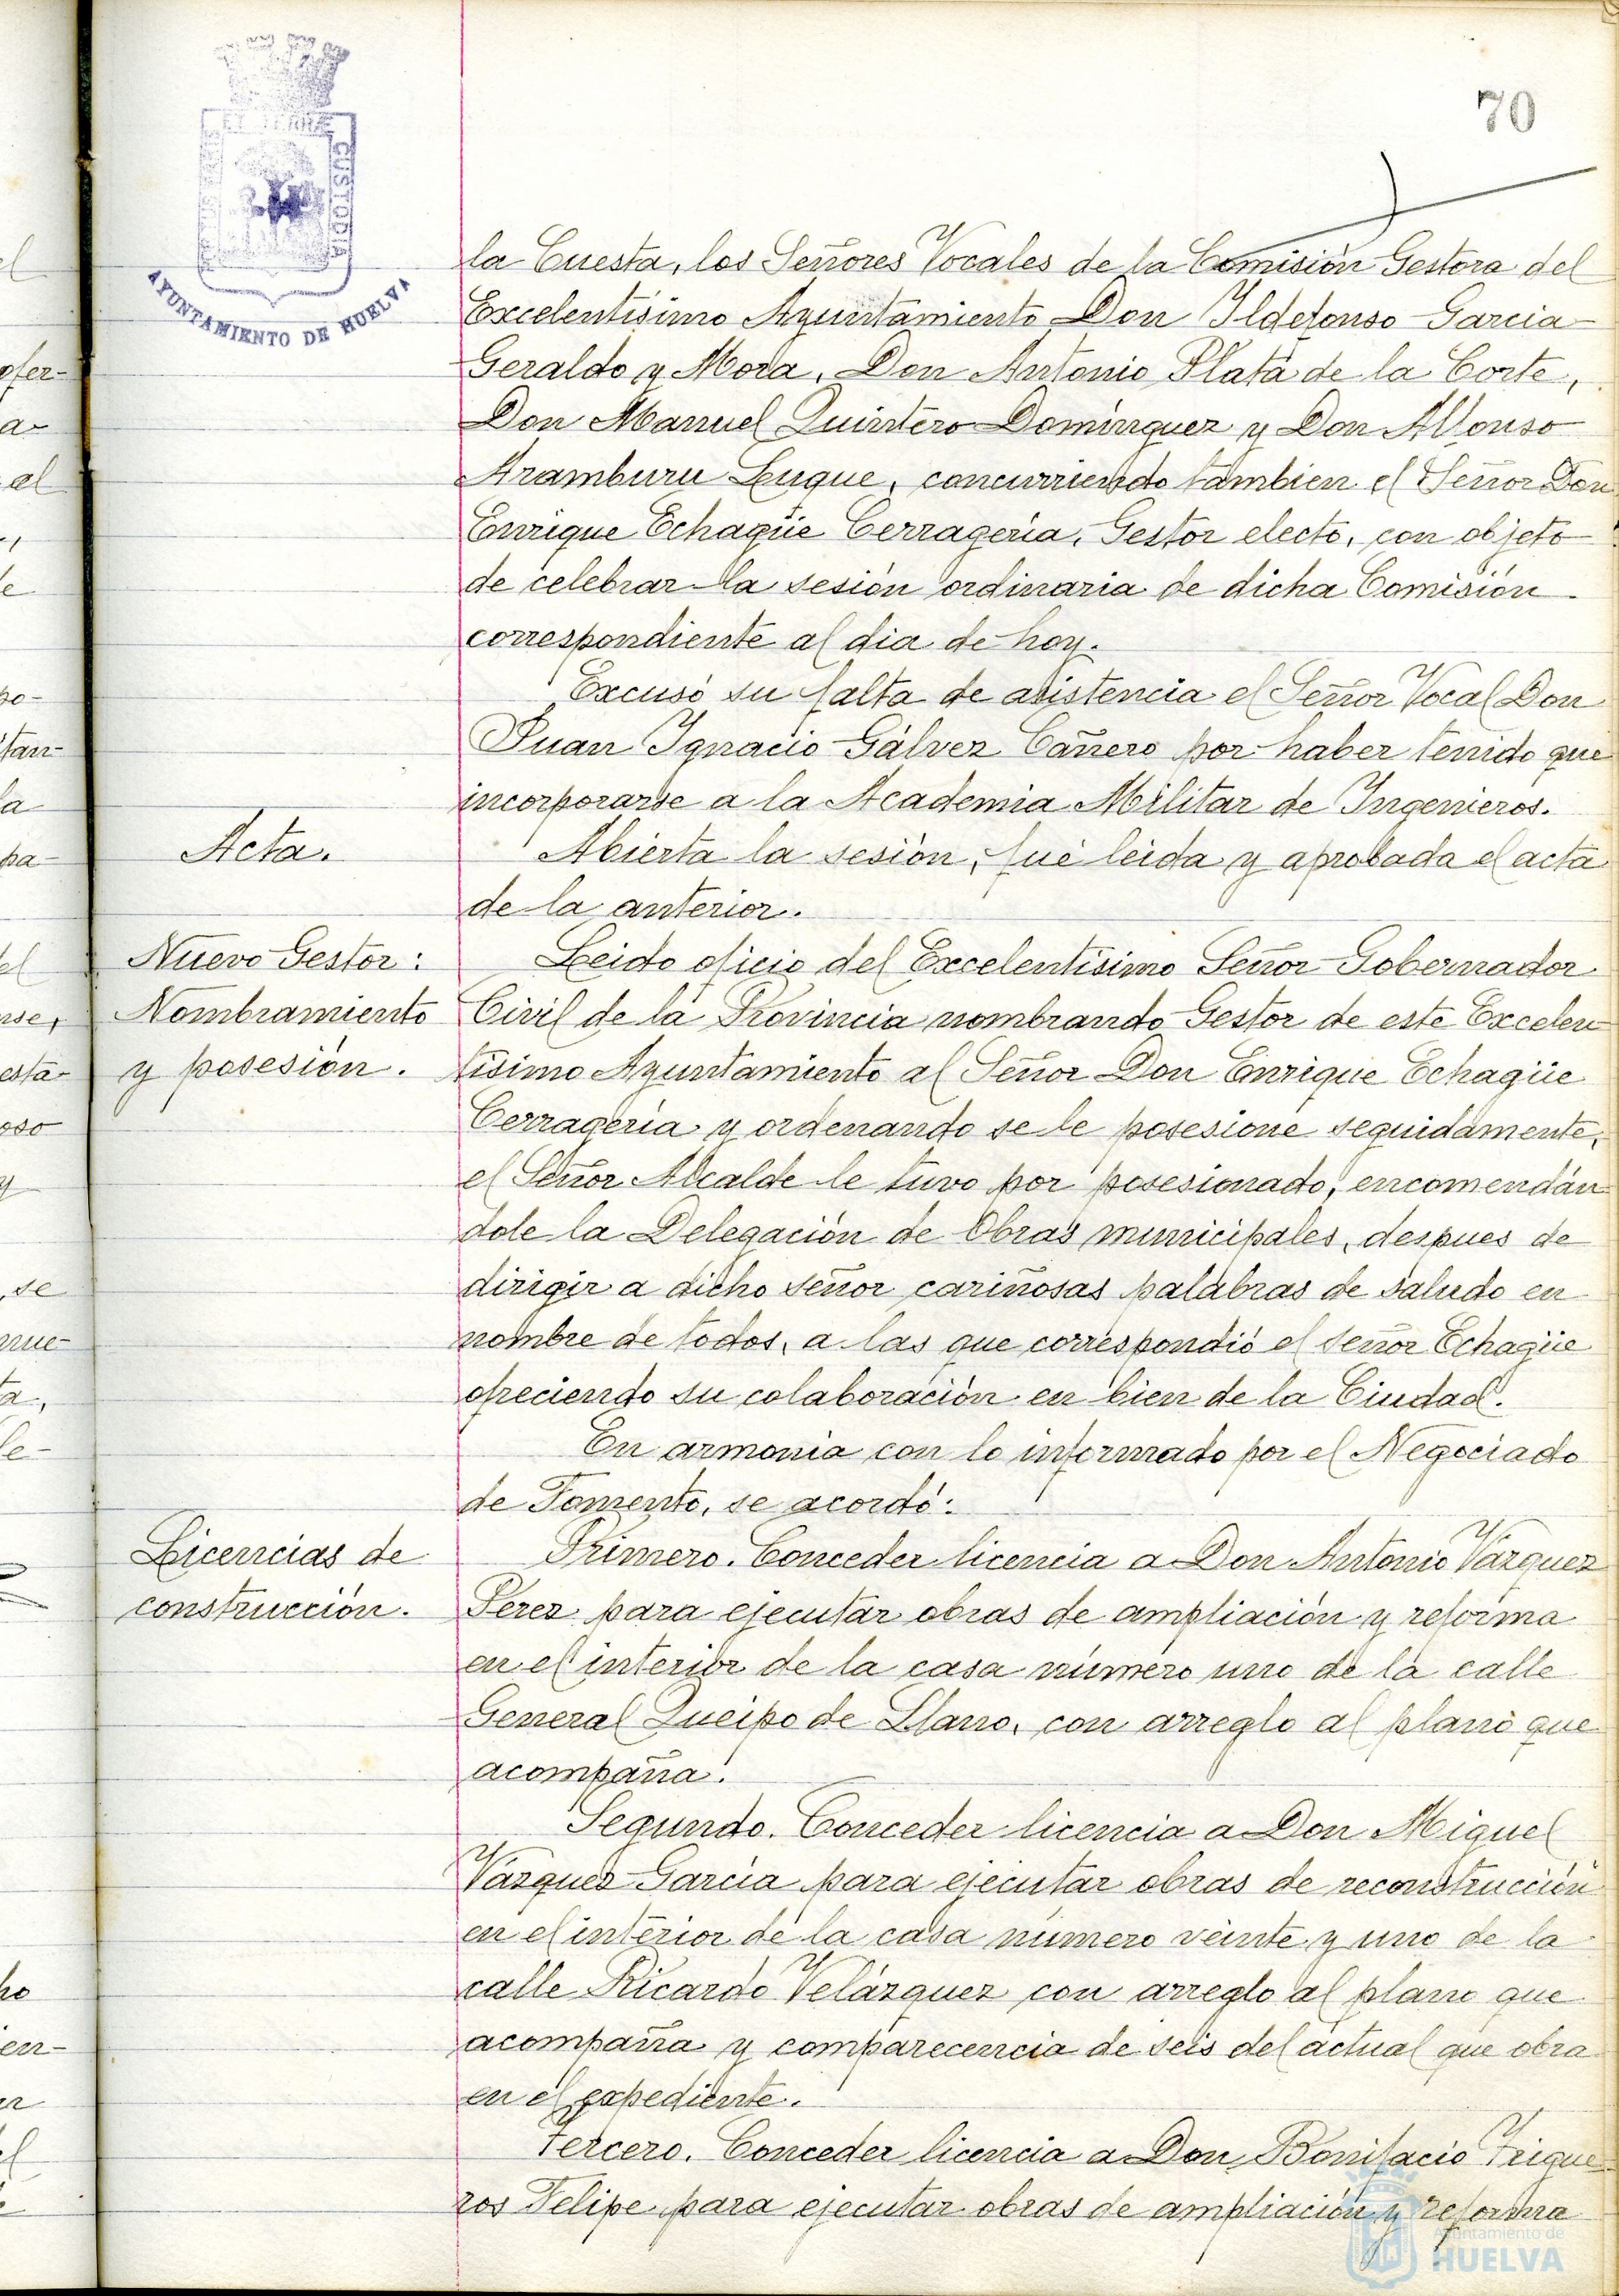 70
ET TERRÆ
CUSTODIA
AYUNTAMIENTO DE HUELVA
la Cuesta, los Señores Vocales de la Comisión Gestora del
Excelentísimo Ayuntamiento Don Ildefonso Garcia
Geraldo y Mora, Don Antonio Plata de la Corte,
Don Manuel Quintero Domínguez y Don Alfonso
Aramburu Luque, concurriendo también el Señor Don
Enrique Echagüe Cerragería, Gestor electo, con objeto
de celebrar la sesión ordinaria de dicha Comisión
correspondiente al dia de hoy.
Excusó su falta de asistencia el Señor Vocal Don
Juan Ignacio Gálvez Cañero por haber tenido que
incorporarse a la Academia Militar de Ingenieros.
Acta.
Abierta la sesión, fué leida y aprobada el acta
de la anterior.
Nuevo Gestor:
Nombramiento
y posesión.
Leido oficio del Excelentísimo Señor Gobernador
Civil de la Provincia nombrando Gestor de este Excelen
tísimo Ayuntamiento al Señor Don Enrique Echagüe
Cerragería y ordenando se le posesione seguidamente,
el Señor Alcalde le tuvo por posesionado, encomendán
dole la Delegación de Obras municipales, despues de
dirigir a dicho señor cariñosas palabras de saludo en
nombre de todos, a las que correspondió el señor Echagüe
ofreciendo su colaboración en bien de la Ciudad.
En armonia con lo informado por el Negociado
de Fomento, se acordó:
Licencias de
construcción.
Primero. Conceder licencia a Don Antonio Vázquez
Pérez para ejecutar obras de ampliación y reforma
en el interior de la casa número uno de la calle
General Queipo de Llano, con arreglo al plano que
acompaña.
Segundo. Conceder licencia a Don Miguel
Vázquez García para ejecutar obras de reconstrucción
en el interior de la casa número veinte y uno de la
calle Ricardo Velázquez con arreglo al plano que
acompaña y comparecencia de seis del actual que obra
en el expediente.
Tercero. Conceder licencia a Don Bonifacio Trigue
ros Felipe para ejecutar obras de ampliación y reforma
Ayuntamiento de
HUELVA